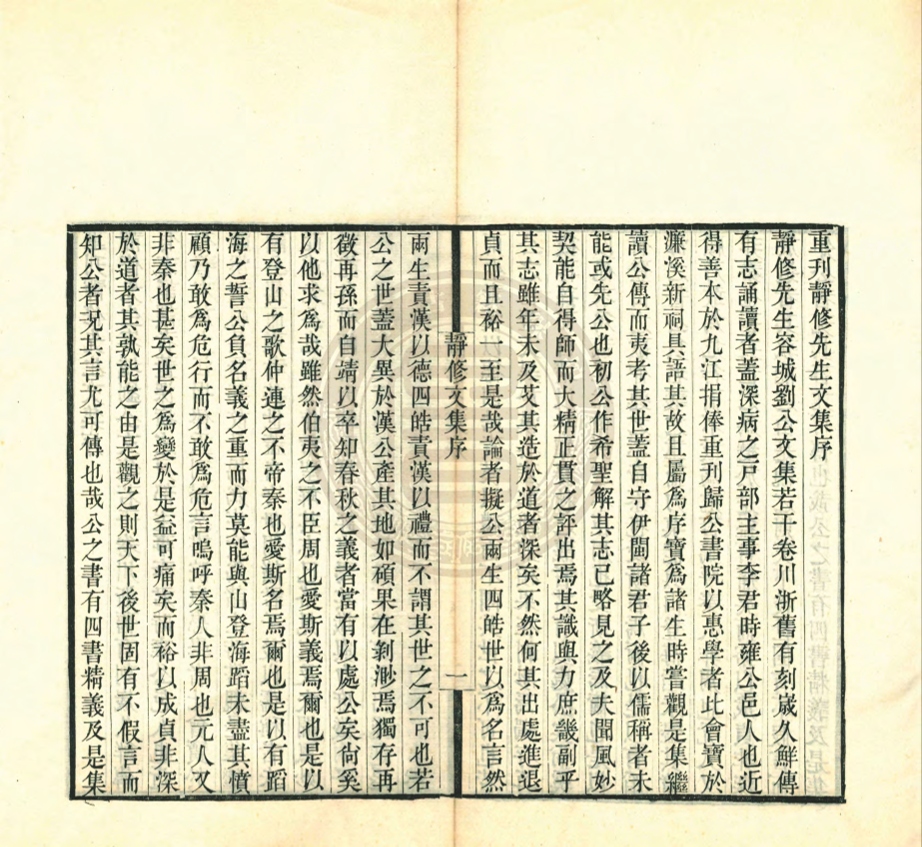 重刊靜修先生文集序
靜修先生容城劉公文集若干卷川浙舊有刻歲久鮮傳
有志誦讀者蓋深病之戸部主事李君時雍公邑人也近
得善本於九江捐俸重刊歸公書院以惠學者比會寶於
濂溪新祠具語其故且屬爲序寶爲諸生時嘗觀是集繼
讀公傳而夷考其世蓋自守伊閩諸君子後以儒稱者未
能或先公也初公作希聖解其志已略見之及夫聞風妙
契能自得師而大精正貫之評出焉其識與力庶畿副乎
其志雖年未及艾其造於道者深矣不然何其出處進退
貞而且裕一至是哉論者擬公兩生四皓世以爲名言然
靜修文集序
一
兩生責漢以德四皓責漢以禮而不謂其世之不可也若
公之世蓋大異於漢公產其地如碩果在剝渺焉獨存再
徵再孫而自靖以卒知春秋之義者當有以處公矣尙奚
以他求爲哉雖然伯夷之不臣周也愛斯義焉爾也是以
有登山之歌仲連之不帝秦也愛斯名焉爾也是以有蹈
海之誓公負名義之重而力莫能與山登海蹈未盡其憤
顧乃敢爲危行而不敢爲危言嗚呼秦人非周也元人又
非秦也甚矣世之爲變於是益可痛矣而裕以成貞非深
於道者其孰能之由是觀之則天下後世固有不假言而
知公者況其言尤可傳也哉公之書有四書精義及是集